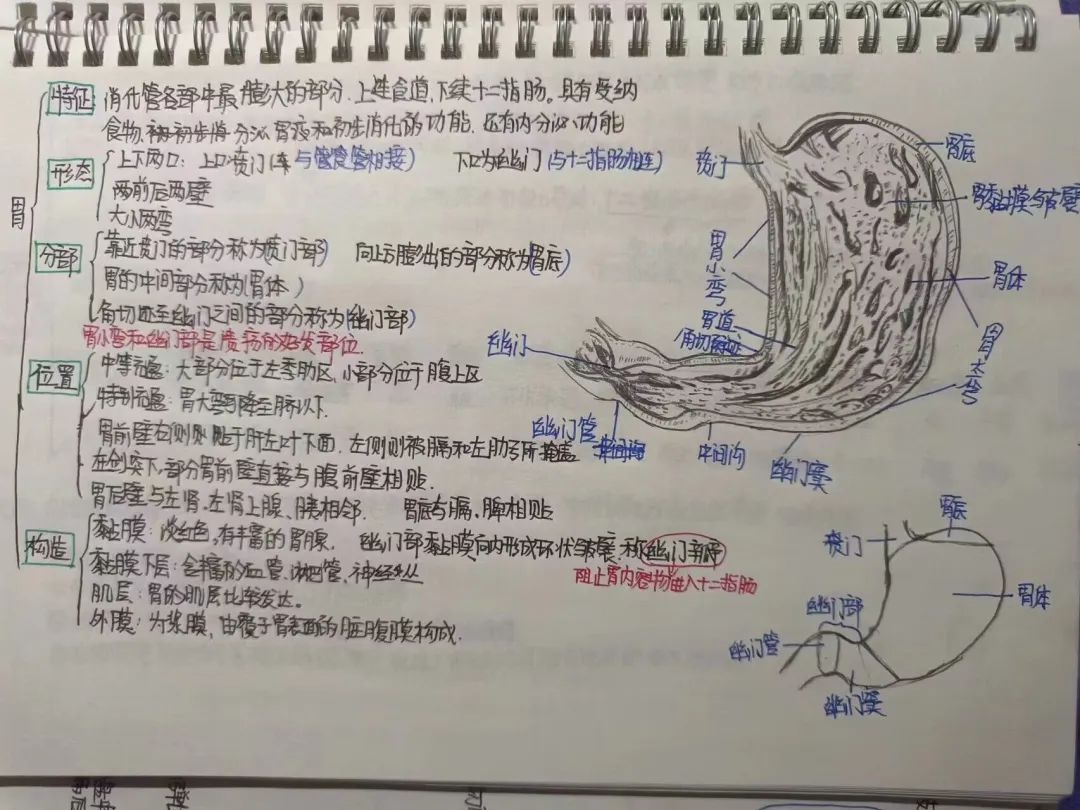 胃
特征：消化管各部中最膨大的部分，上连食道，下续十二指肠。具有受纳
食物、初步 分泌胃液和初步消化的功能，还有内分泌功能
形态
上下两口：上口贲门（与食管相接） 下口为幽门（与十二指肠相连）
两前后两壁
大小两弯
分部
靠近贲门的部分称为（贲门部） 向上方膨出的部分称为（胃底）
胃的中间部分称为（胃体）
角切迹至幽门之间的部分称为（幽门部）
胃小弯和幽门部是溃疡的好发部位.
位置
中等充盈：大部分位于左季肋区，小部分位于腹上区
特别充盈：胃大弯可降至脐以下.
胃前壁右侧则贴于肝左叶下面，左侧则被膈和左肋弓所掩盖
左剑突下，部分胃前壁直接与腹前壁相贴.
胃后壁与左肾、左肾上腺、胰相邻. 胃底与膈、脾相贴
构造
黏膜：淡红色，有丰富的胃腺. 幽门部黏膜向内形成环状皱襞，称幽门瓣
阻止胃内容物进入十二指肠
黏膜下层：含丰富的血管、淋巴管、神经丛
肌层：胃的肌层比较发达。
外膜：为浆膜，由覆于胃表面的脏腹膜构成.
贲门
胃底
胃黏膜与皱襞
胃小弯
胃体
胃道
角切迹
胃大弯
幽门
幽门管
中间沟
幽门窦
胃底
贲门
胃体
幽门部
幽门管
幽门窦